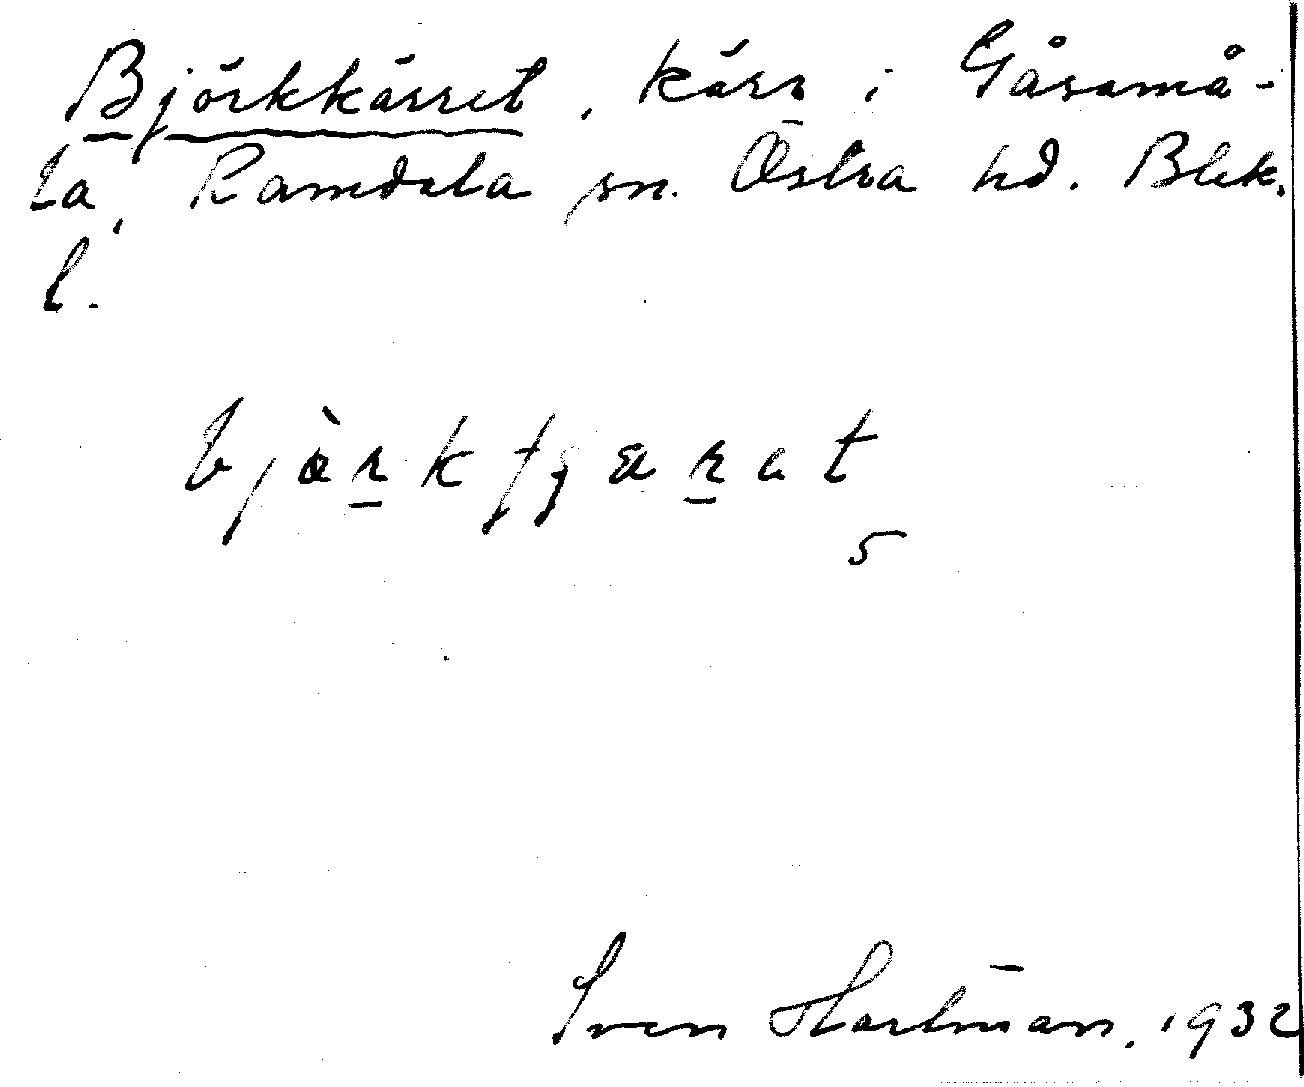 Björkkärret, kärr i Gåsamå-
la, Ramdala sn. Östra hd. Blek.
l.
5
Sven Hartman. 1932